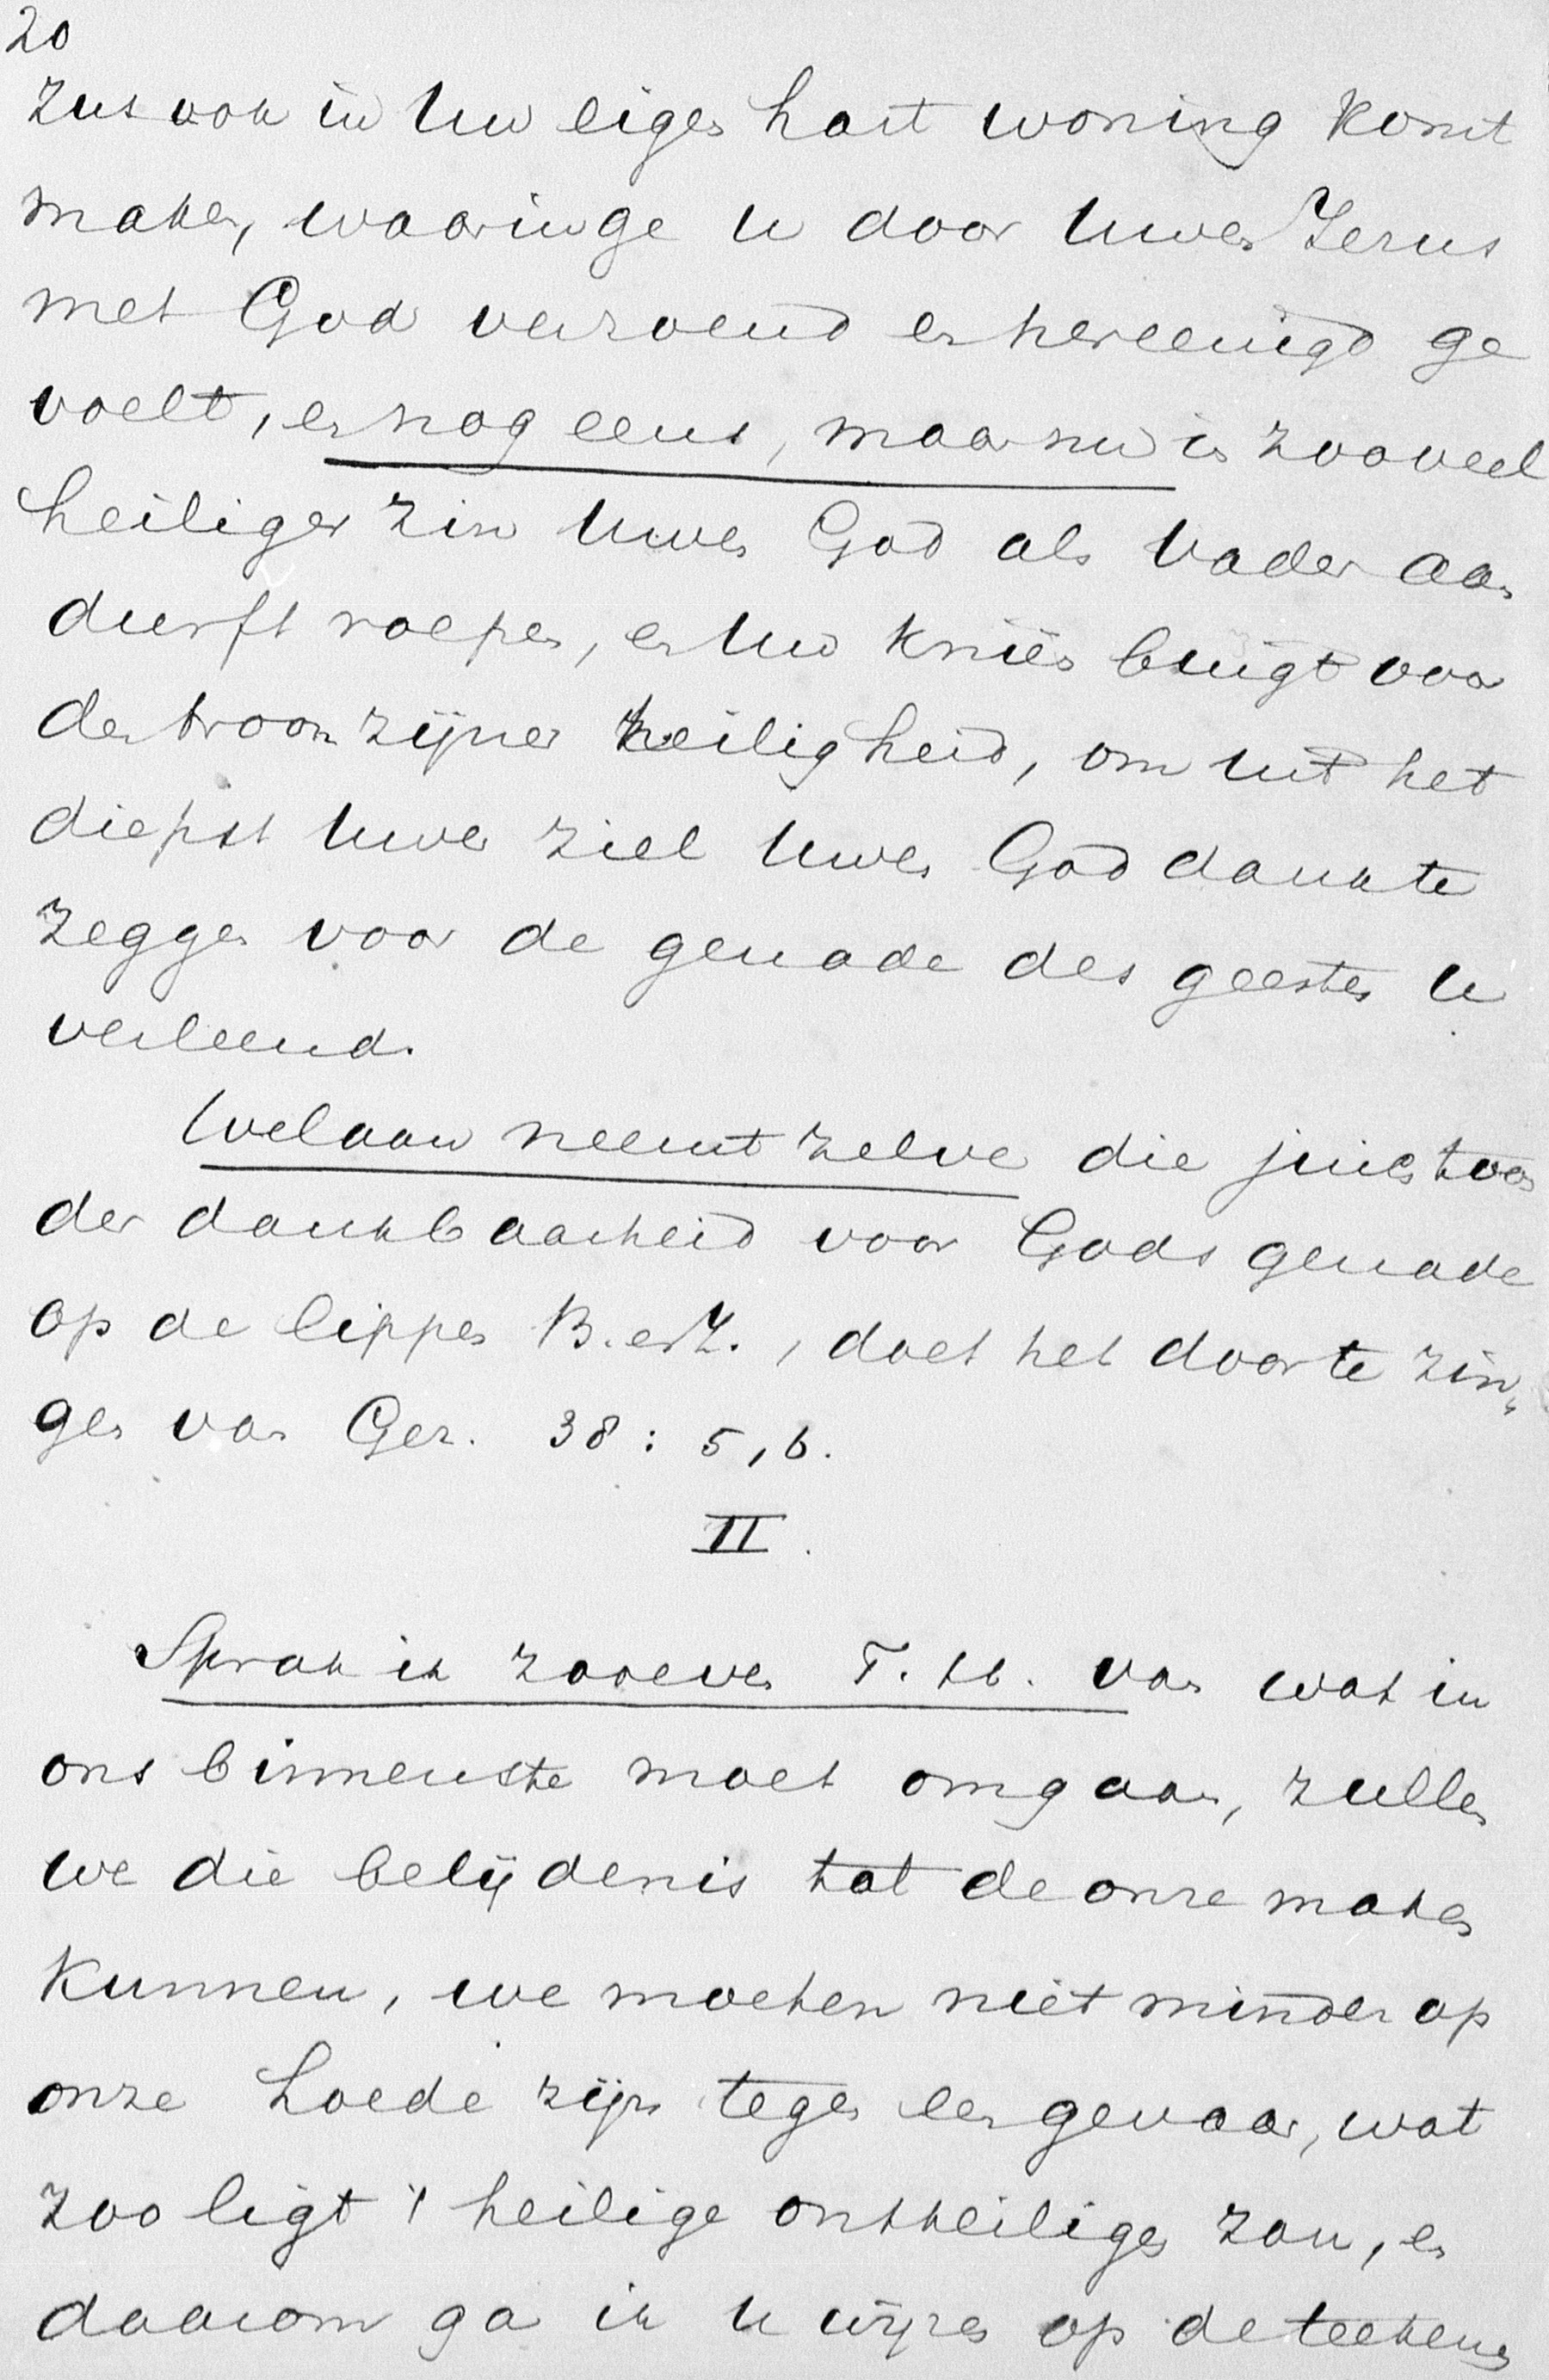 20
zus ook in Uw eigen hart woning komt
maken, waarin ge U door Uwen Jezus
met God verzoend en hereenigd ge
voelt, en nog eens, maar nu in zooveel
heiliger zin Uwen God als Vader aan
durft roepen, en Uw knieën buigt voor
den troon zijner heiligheid, om uit het
diepst Uwer ziel Uwen God dank te
zeggen voor de genade des geestes U
verleend.
Welaan neemt zelve die juichtoon
der dankbaarheid voor Gods genade
op de lippen B. en Z., doet het door te zin„
gen van Gez. 38 : 5, 6.
II.
Sprak ik zooeven T. H. van wat in
ons binnenste moet omgaan, zullen
we die belijdenis tot de onze maken
kunnen, we moeten niet minder op
onze hoede zijn tegen een gevaar, wat
zoo ligt 't heilige ontheiligen zou, en
daarom ga ik U wijzen op de teekens